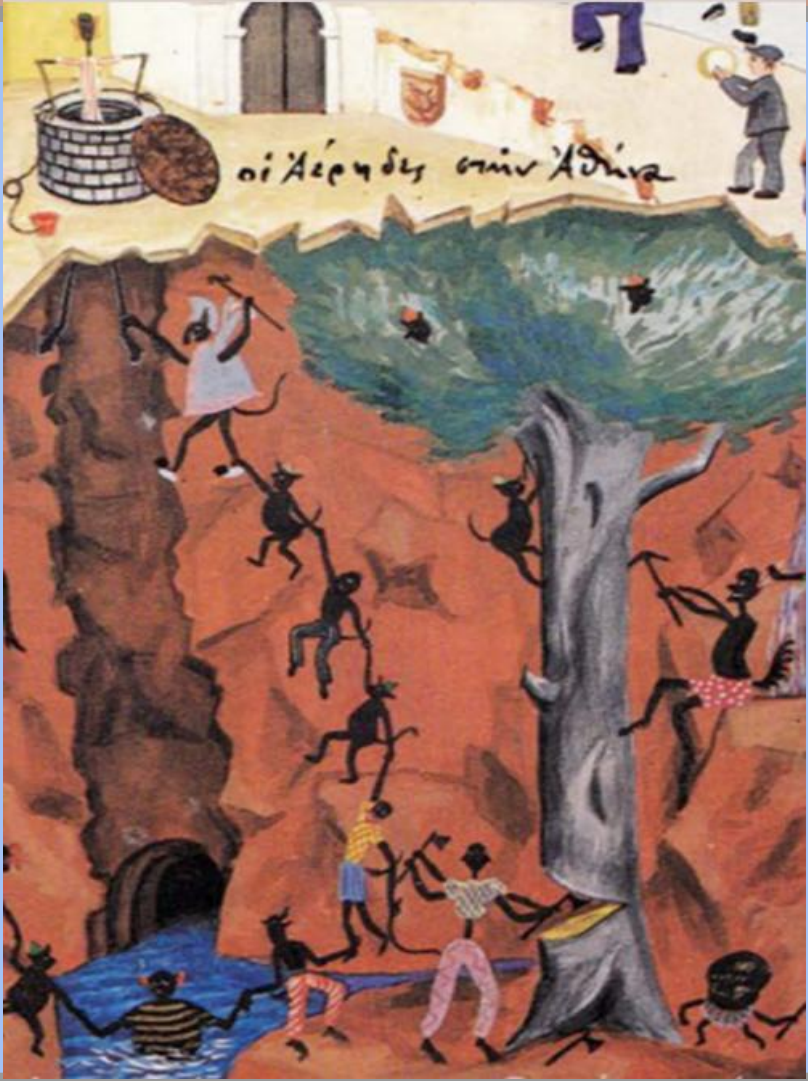 οἱ Ἀέρηδες στὴν Ἀθήνα